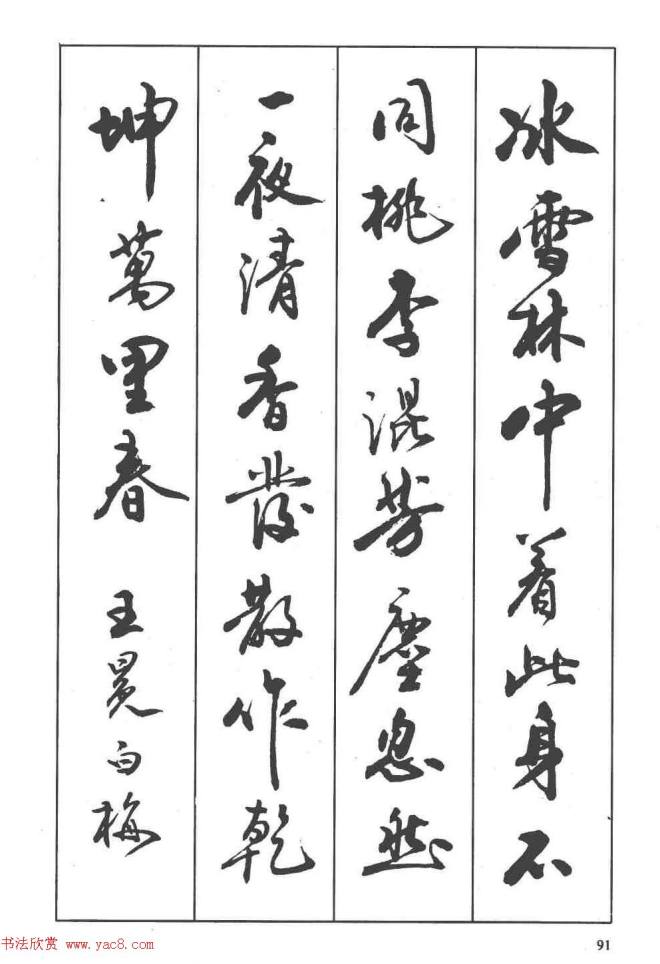 冰雪林中着此身不
同桃李混芳塵忽然
一夜清香發散作乾
坤萬里春 王冕白梅
91
书法欣赏 www.yac8.com